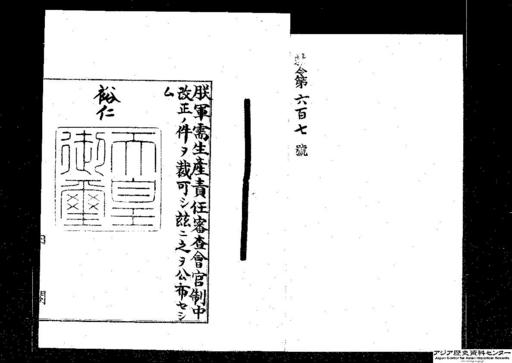 令第六百七號
朕軍需生產責任審査會官制中
改正ノ件ヲ裁可シ玆ニ之ヲ公布セシ
ム
裕仁
天皇
御璽
内閣
アジア歴史資料センター
Japan Center for Asian Historical Records